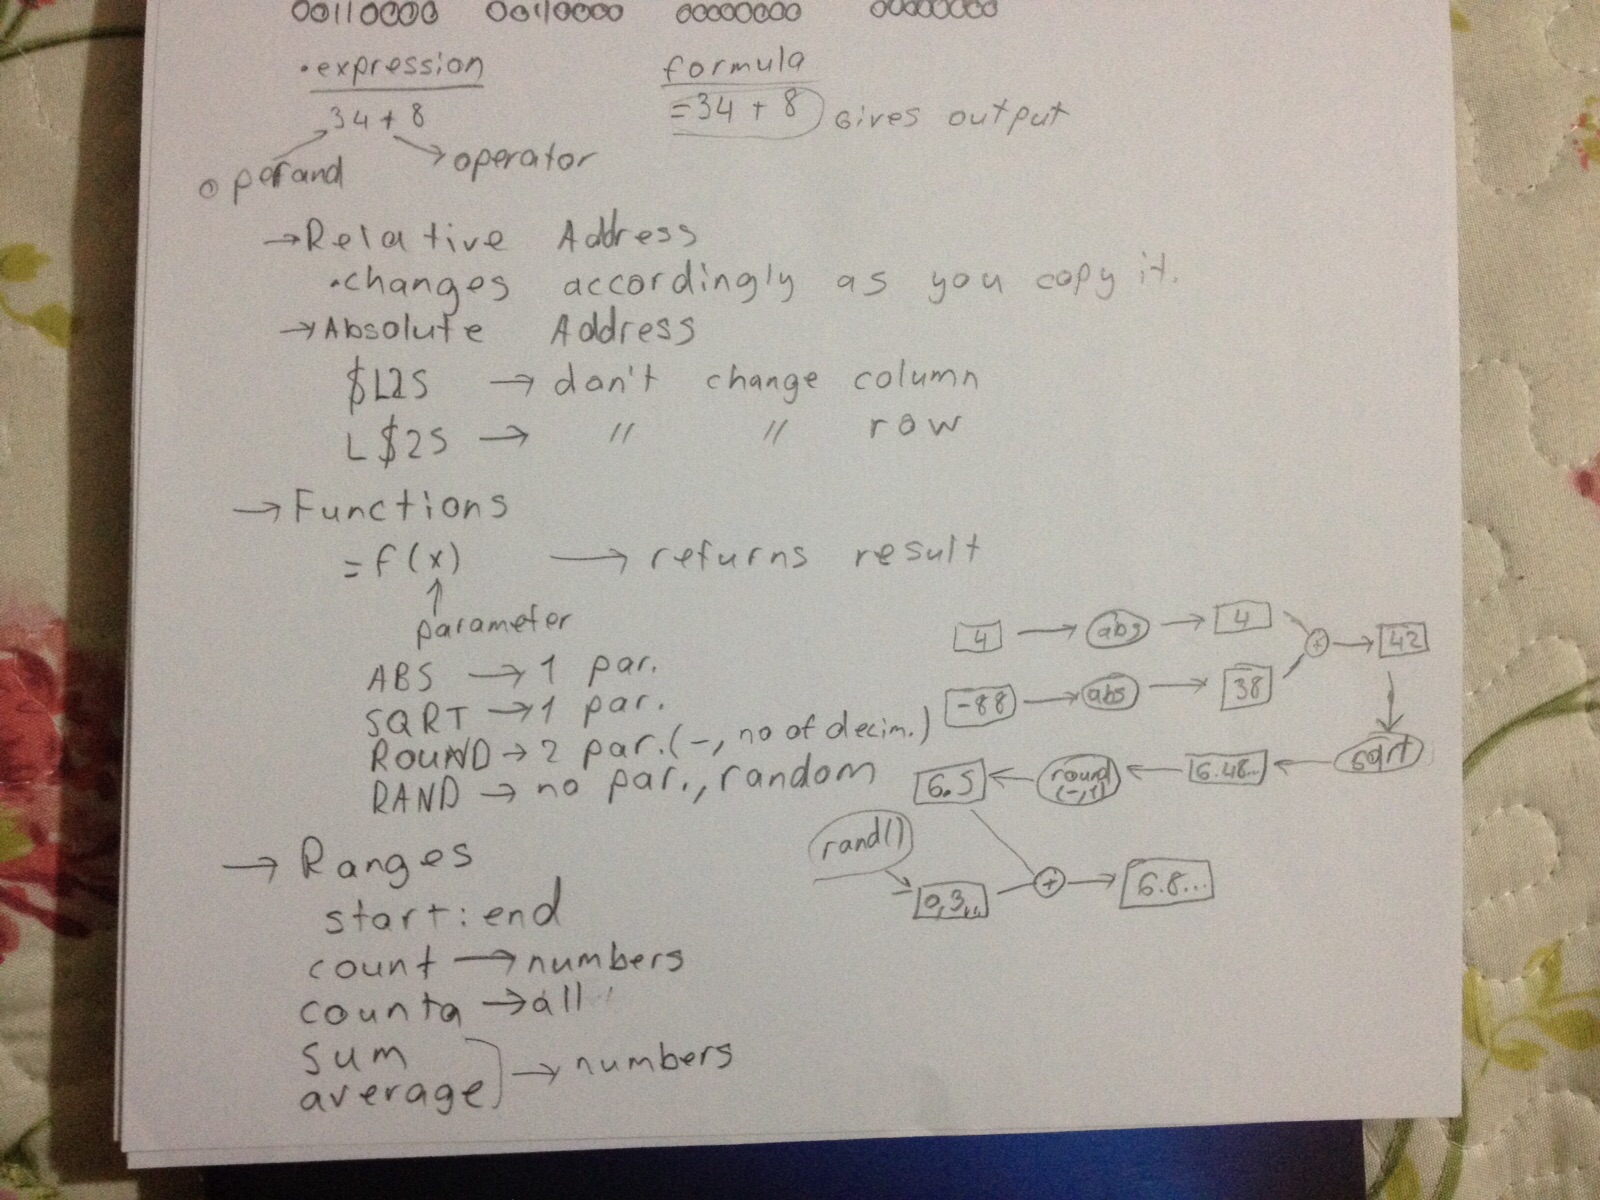 00110000 00110000 00000000 00000000
·expression formula
34+8 =34 + 8 Gives output
operand operator
→Relative Address
·changes accordingly as you copy it.
→Absolute Address
$L25 → don't change column
L$25 → " " row
→Functions
=f(x) → returns result
↑
parameter
ABS → 1 par.
SQRT → 1 par.
ROUND → 2 par.(-, no of decim.)
RAND → no par., random
4 → abs → 4
+ → 42
-88 → abs → 38
6.5 ← round ← 6.48... ← sqrt
(-,1)
rand()
0,3... + → 6.8...
→ Ranges
start:end
count → numbers
counta → all
sum
average → numbers